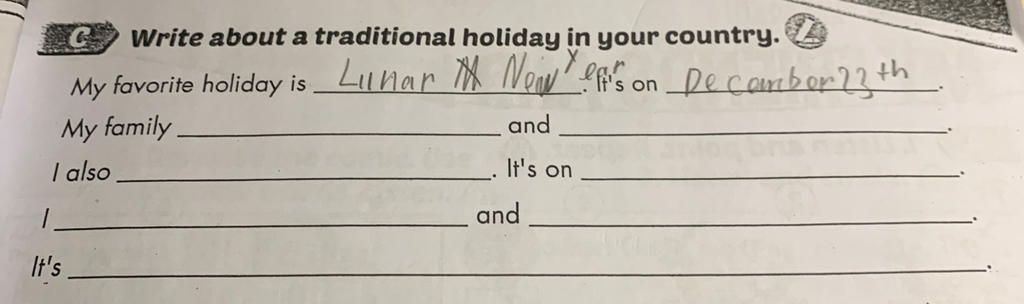 C Write about a traditional holiday in your country.
My favorite holiday is Lunar New Year. It's on December 23th.
My family and .
I also . It's on .
I and .
It's .